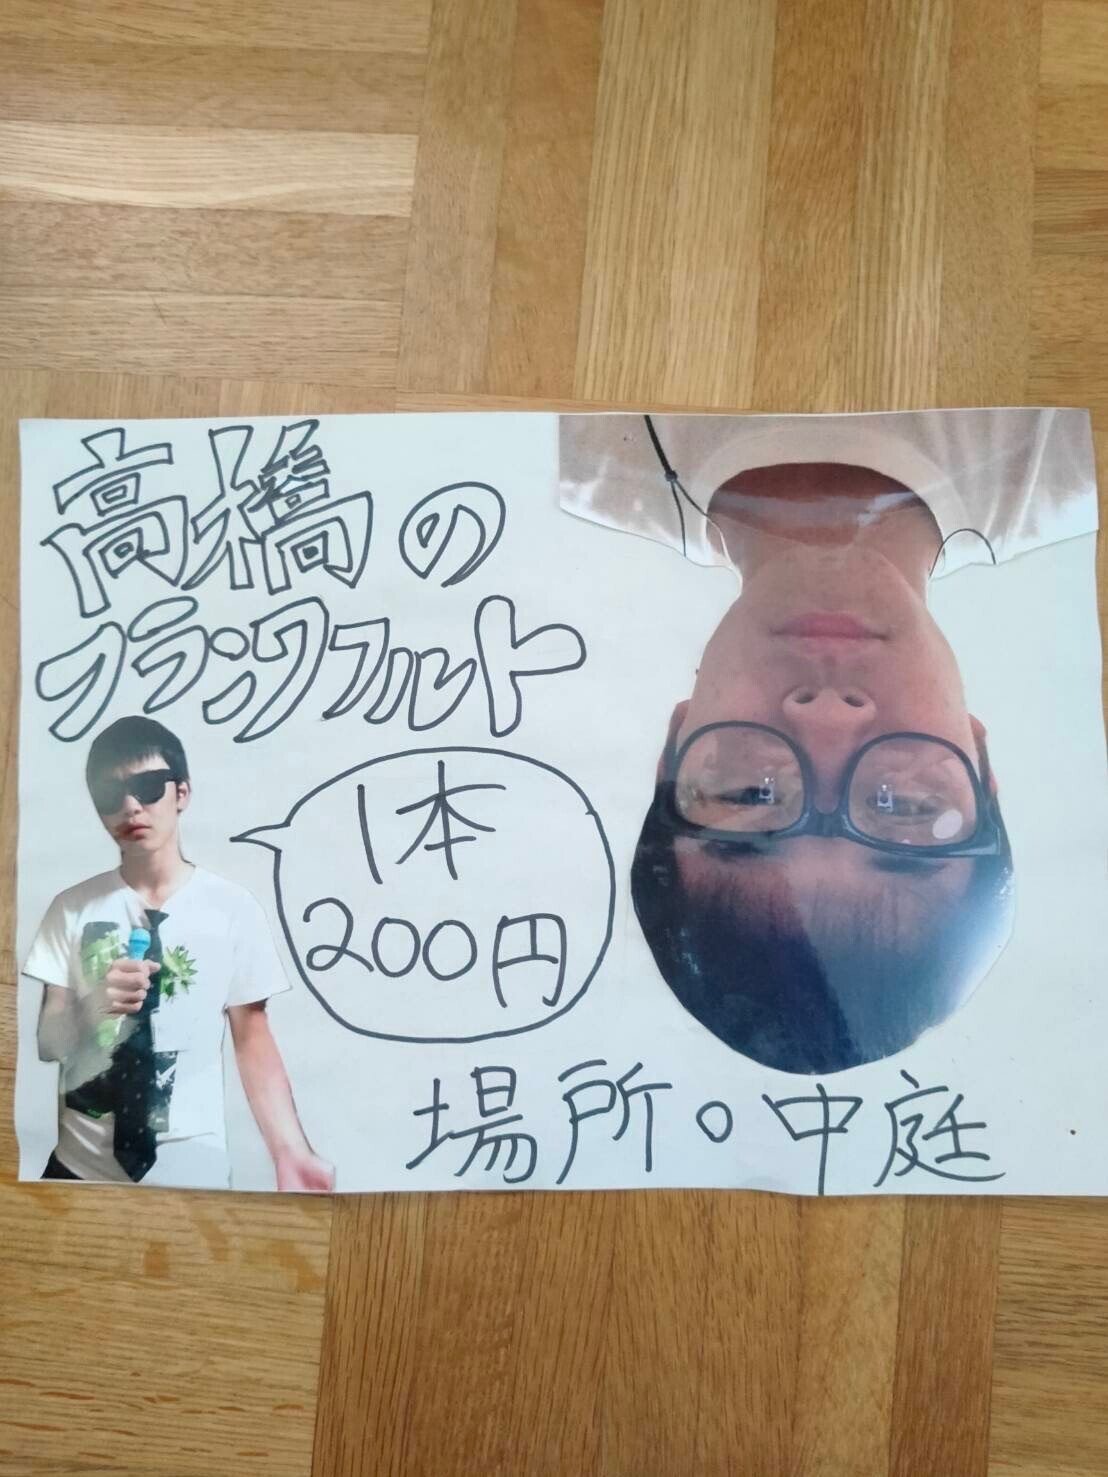 高橋の
フランクフルト
1本
200円
場所。中庭